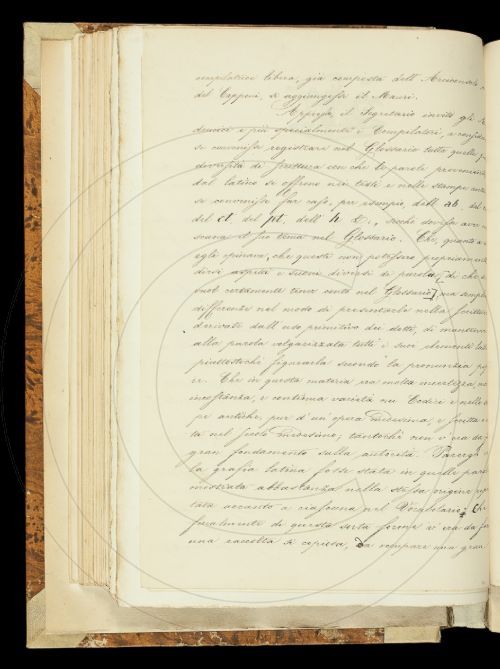 compilatrice libera, già composta dell'Arcidiacono
del Capponi, si aggiungesse il Mauri.
Appresso, il Segretario invitò gli
e più specialmente i Compilatori, a
se convenisse registrare nel Glossario tutte quelle
diversità di scrittura con che le parole
dal latino se offrono nei testi e nelle stampe
se convenisse far caso, per esempio, dell' ab, del
del ct, del pt, dell' h &c., sicché dovesse
il suo tema nel Glossario. Che, quanto a
egli opinava, che queste non potessero propriamente
dirsi aspetti e suoni diversi di parole [di che
suol certamente tener conto nel Glossario], ma
differenze nel modo di presentarle nella scrittura
derivate dall'uso primitivo dei dotti, di mantenere
alla parola volgarizzata tutti i suoi elementi
piuttostochè figurarla secondo la pronunzia
re. Che in questa materia era molta incertezza,
incostanza, e continua varietà nei Codici e nelle
pe antiche, pur d'un'opera medesima, e scritta
ta nel secolo medesimo; tantochè non v'era da
gran fondamento sulla autorità. Parergli
la grafia latina fosse stata in quelle
mostrata abbastanza nella stessa origine
tata accanto a ciascuna nel Vocabolario; Che
finalmente di questa sorta forme v'era da
una raccolta sì copiosa, da occupare una gran